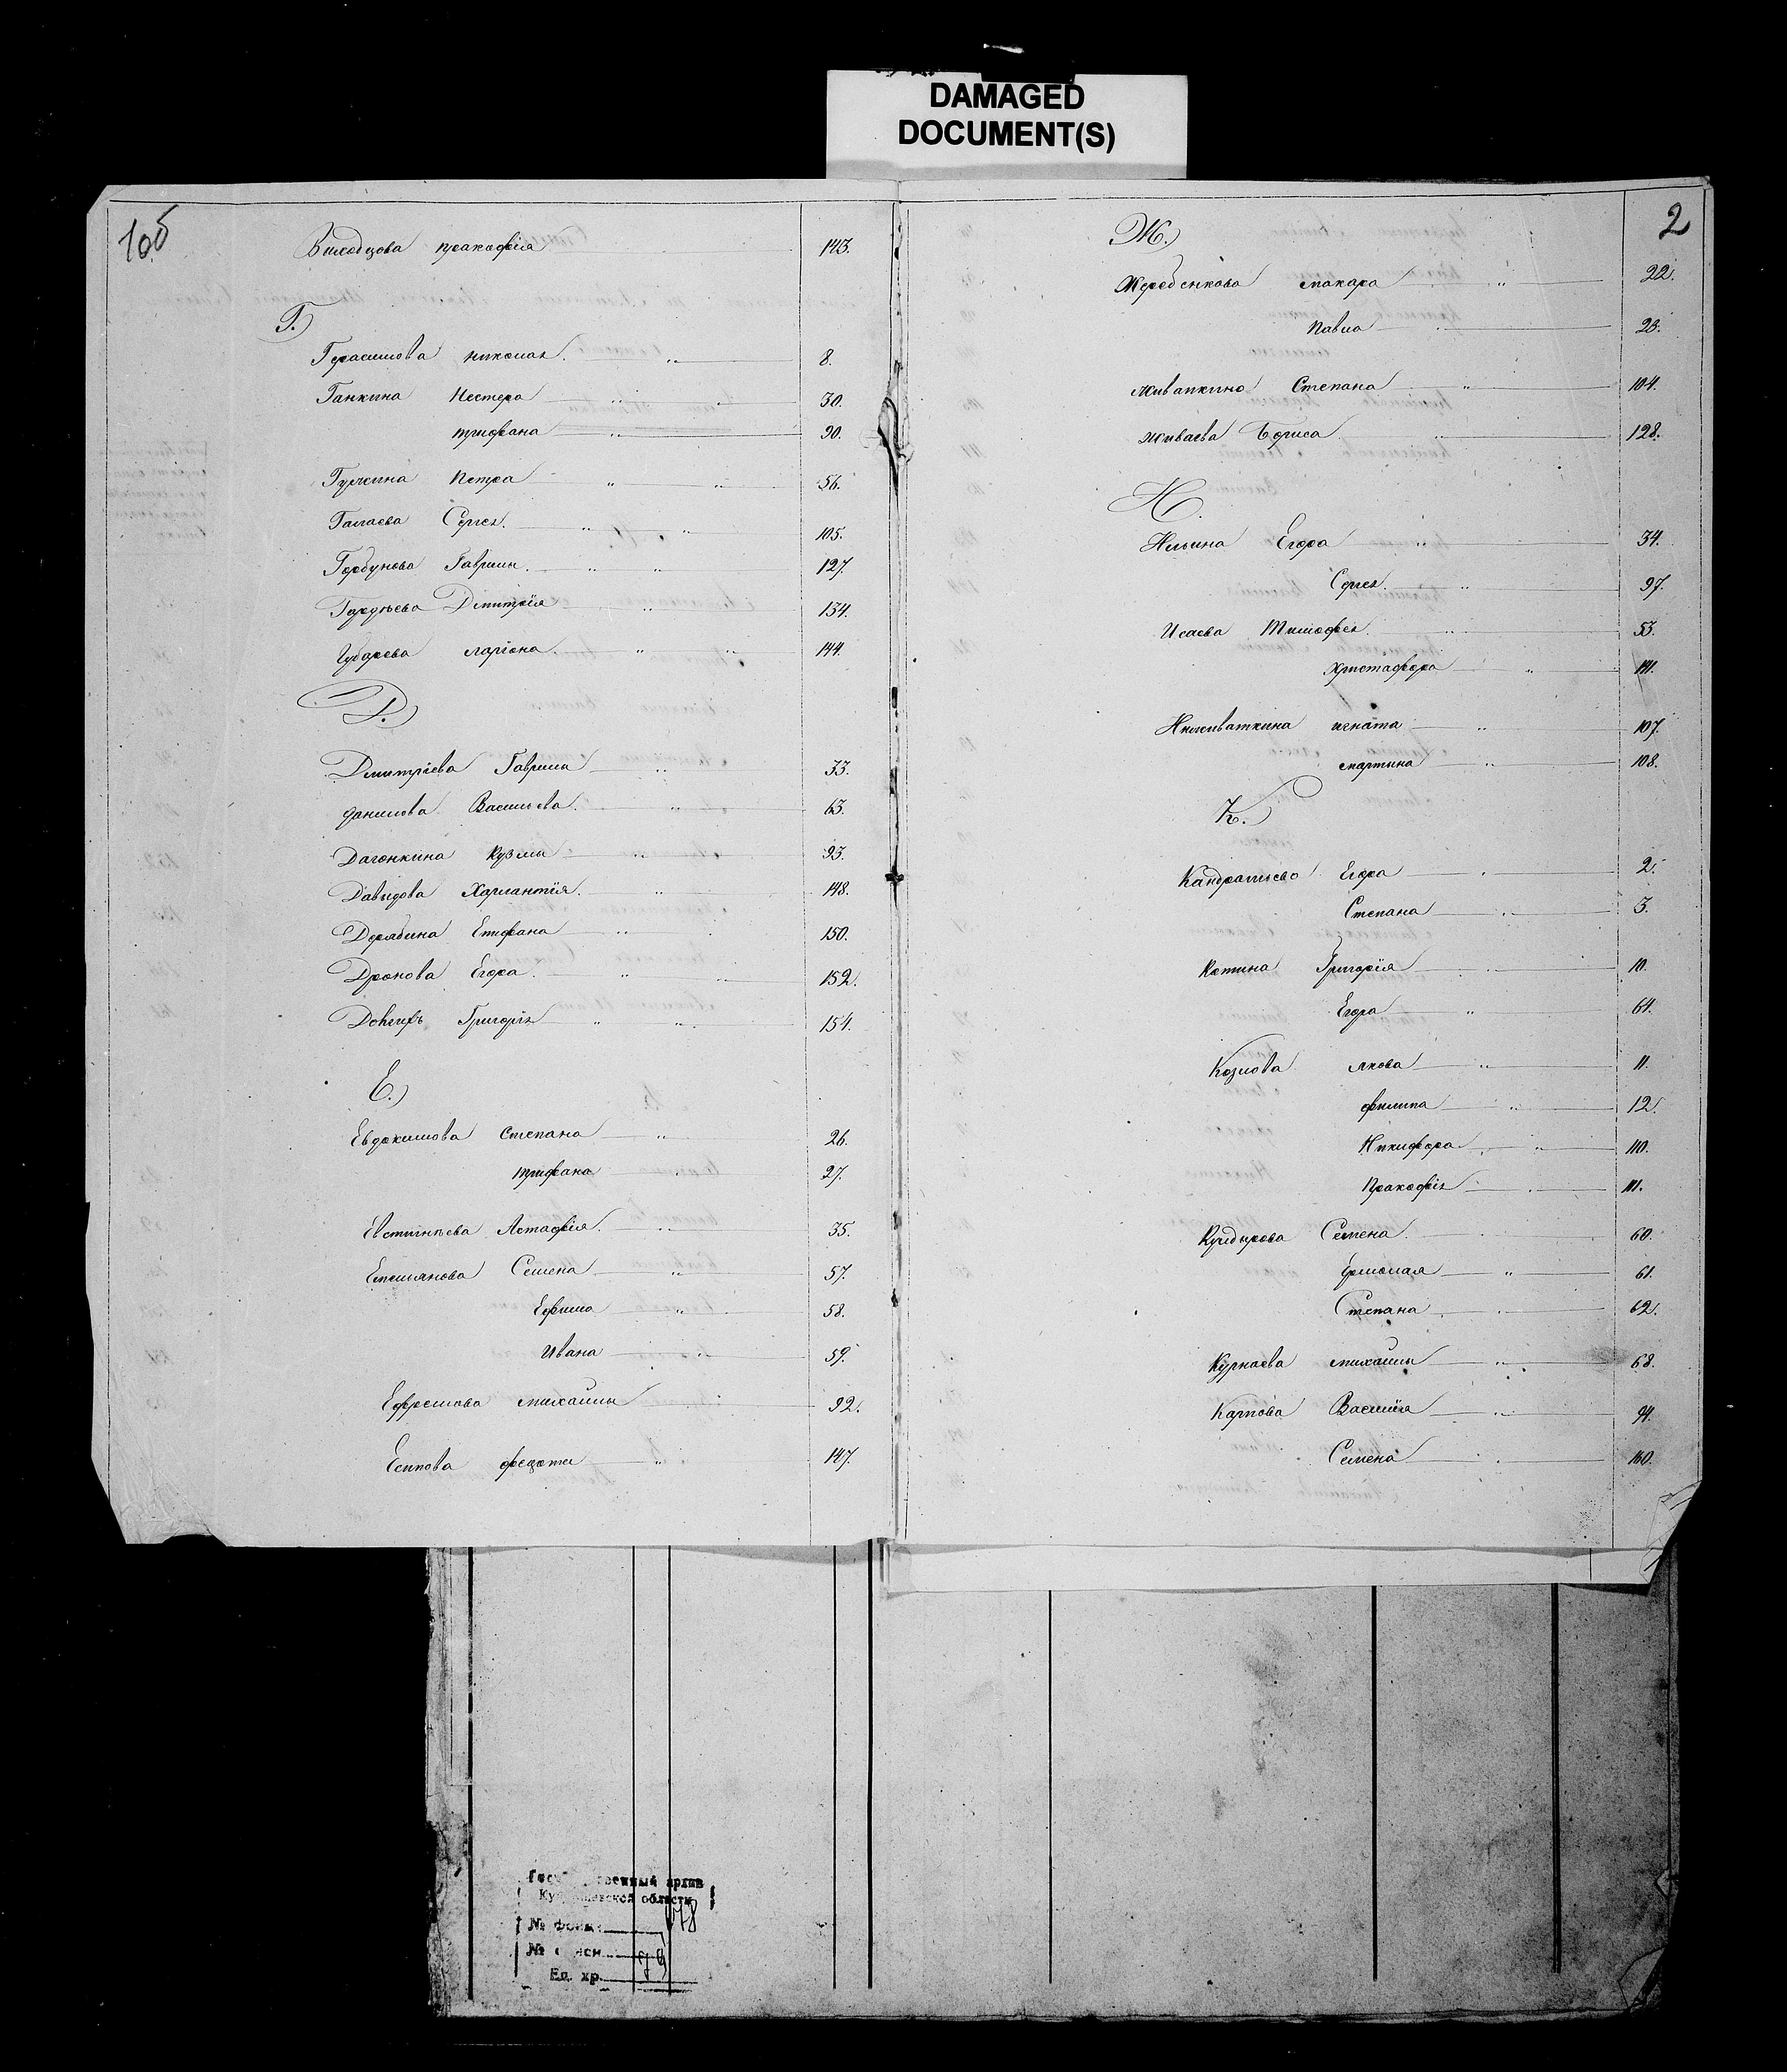 DAMAGED
DOCUMENT(S)
1об
Выходцова Пракофія 143.
Г.)
Герасимова Николая 8.
Ганкина Нестера 30.
Трифана 90.
Гулкина Петра 56.
Галаева Сергея 105.
Горбунова Гаврилы 127.
Гордѣева Дмитрія 134.
Губарева Ларіона 144.
Д.)
Дмитріева Гаврилы 33.
Данилова Васильева 63.
Дагонкина Кузмы 93.
Давыдова Харлантія 148.
Дерябина Епифана 150.
Дронова Егора 152.
Григорія 154.
Е.)
Евдокимова Степана 26.
Трифана 27.
Евстигнѣева Астафія 35.
Емельянова Семена 57.
Ефима 58.
Ивана 59.
Ефремова Михайлы 92.
Есипова Федота 147.
2
Ж.)
Жеребенкова Макара 22.
Павла 23.
Живаикина Степана 104.
Живаева Бориса 128.
И.
Ильина Егора 34.
Сергея 97.
Исаева Тимофея 53.
Христафора 141.
Инживаткина Игната 107.
Мартына 108.
К.)
Кандратьева Егора 2.
Степана 3.
Котина Григорія 10.
Егора 64.
Козлова Якова 11.
Филипа 12.
Никифора 110.
Пракофія 111.
Кулдырова Семена 60.
Ермолая 61.
Степана 62.
Курнаева Михайлы 68.
Карпова Василія 94.
Семена 160.
архив
области
№ фонда 178
№ описи
Ед. хр.